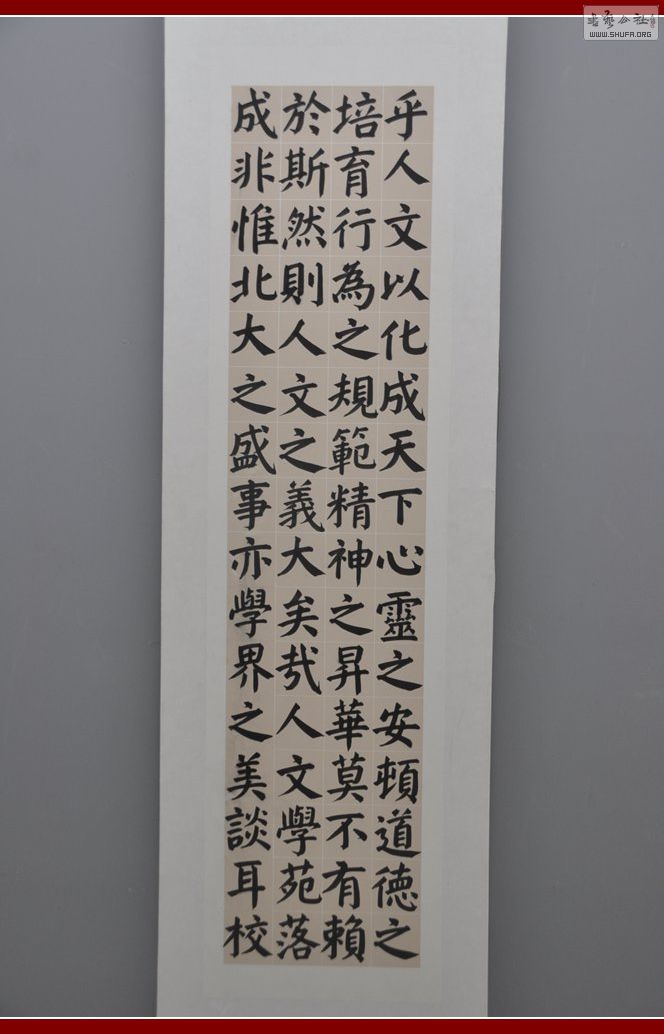 乎人文以化成天下心靈之安頓道德之
培育行為之規範精神之昇華莫不有賴
於斯然則人文之義大矣哉人文學苑落
成非惟北大之盛事亦學界之美談耳校
書藝公社
WWW.SHUFA.ORG